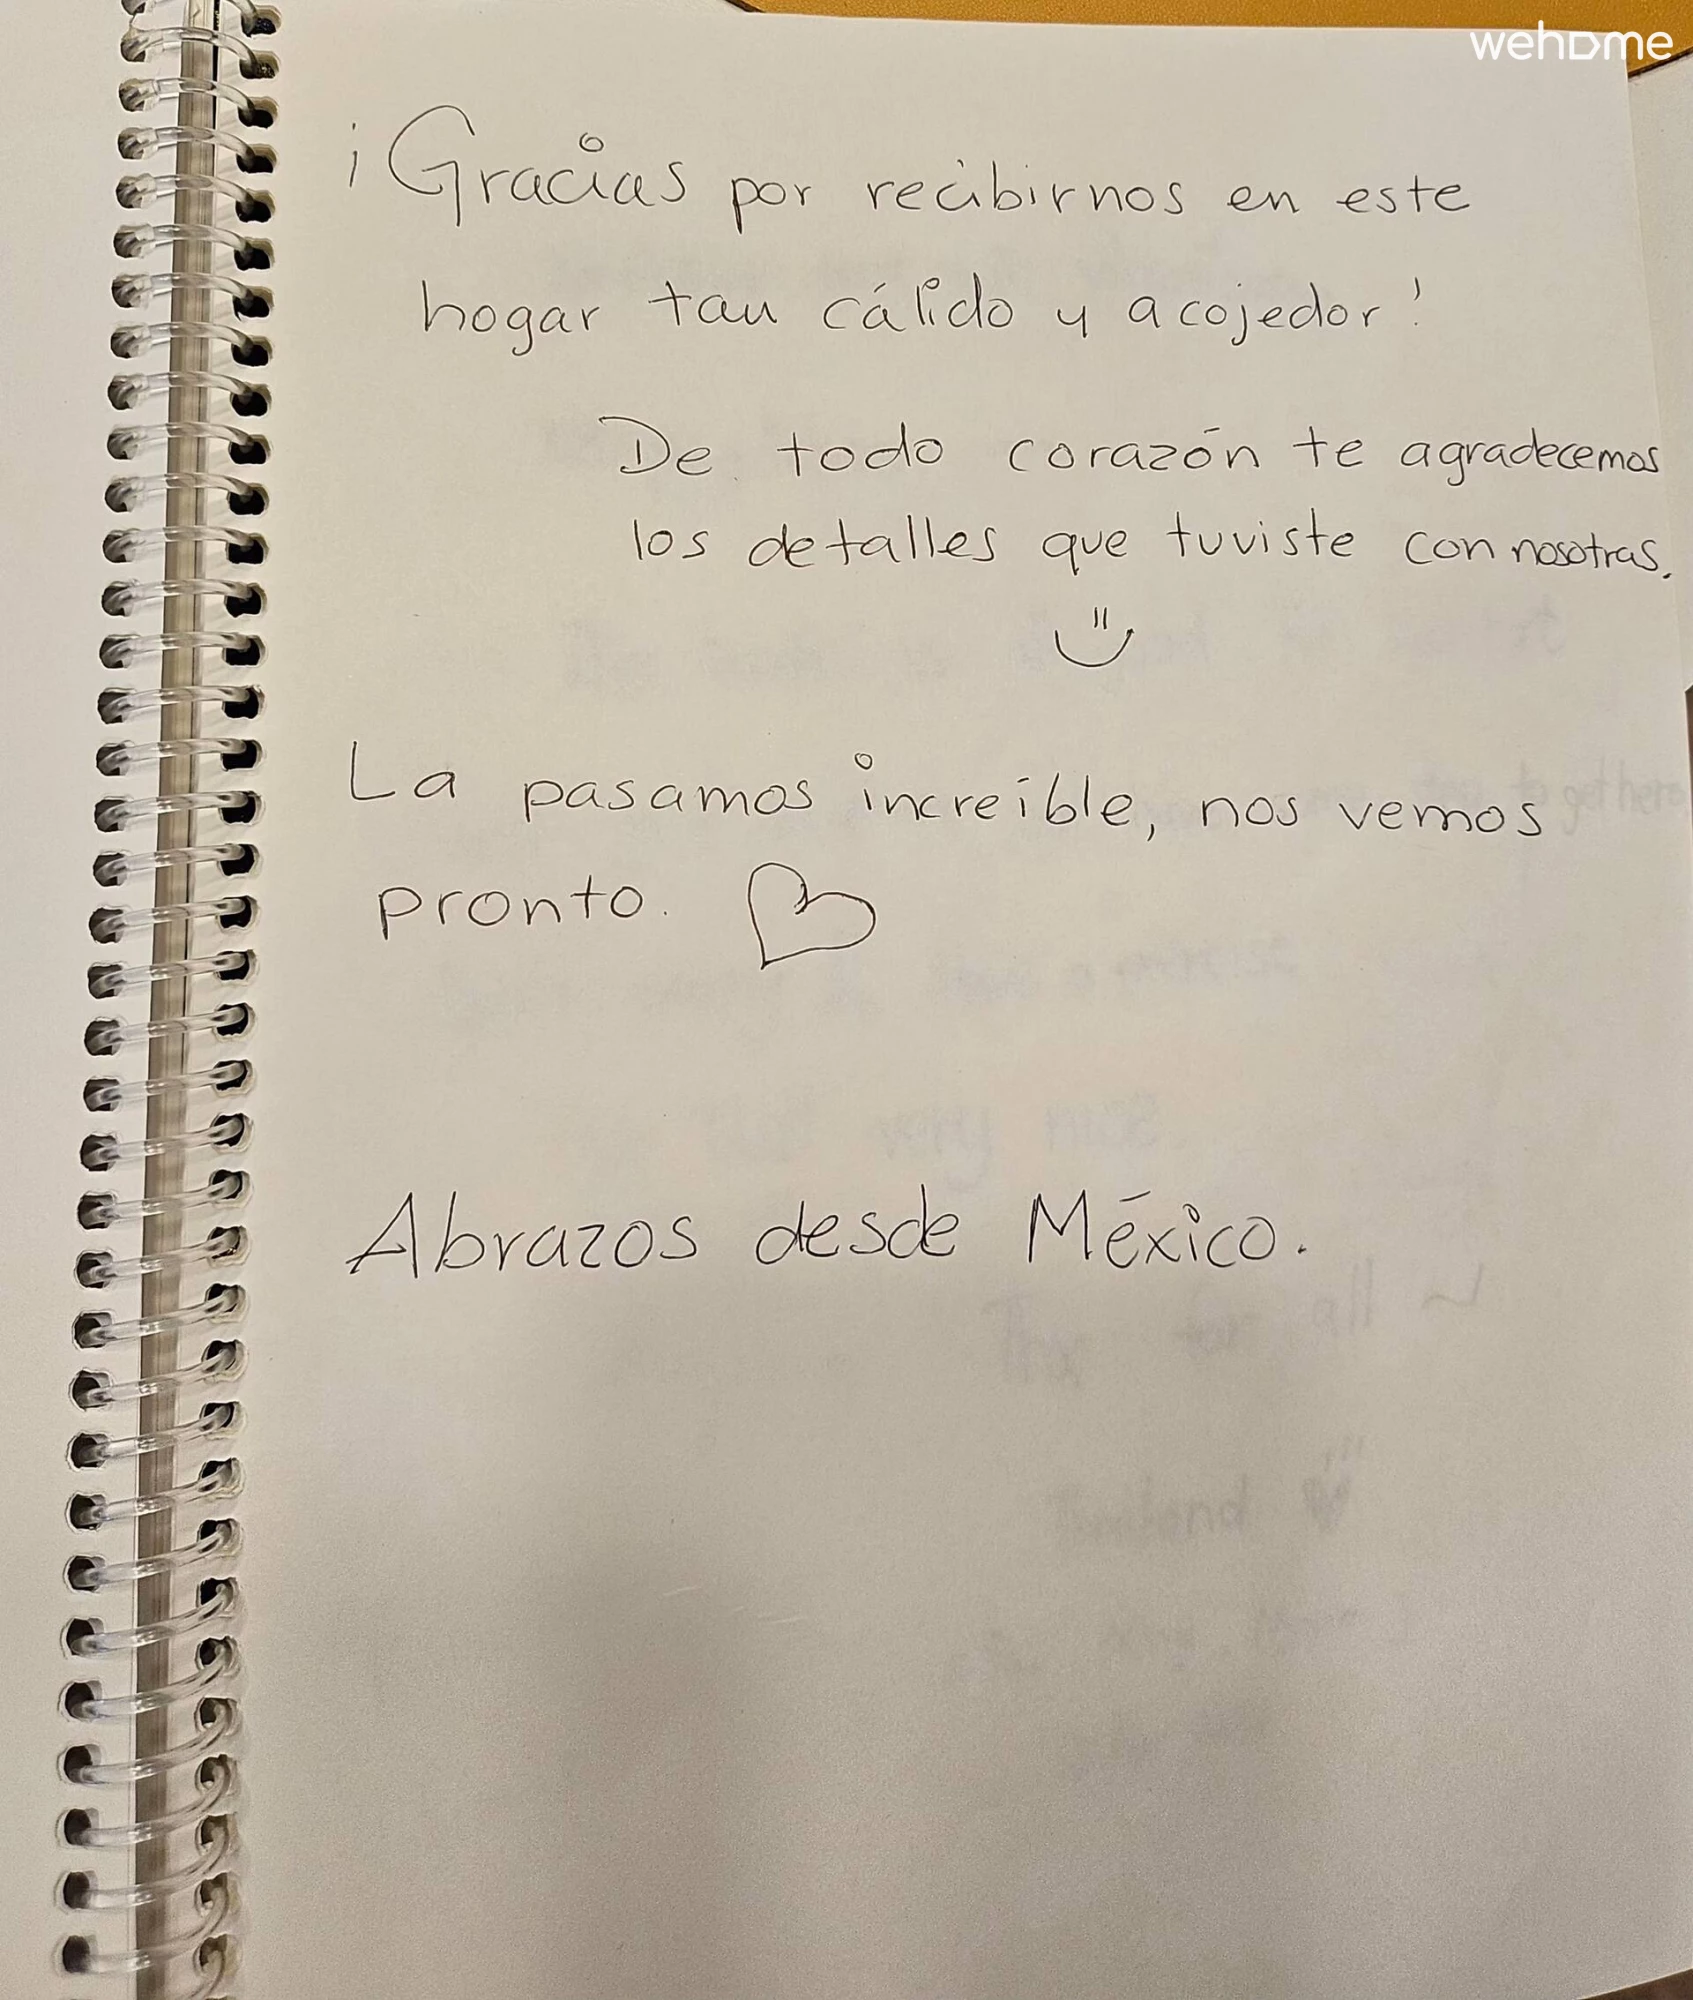 wehome
¡Gracias por recibirnos en este
hogar tan cálido y acojedor!
De todo corazón te agradecemos
los detalles que tuviste con nosotras.
La pasamos increíble, nos vemos
pronto.
Abrazos desde México.